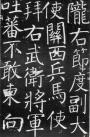 隴右節度副大
使關西兵馬使
拜右武衛將軍
吐蕃不敢東向